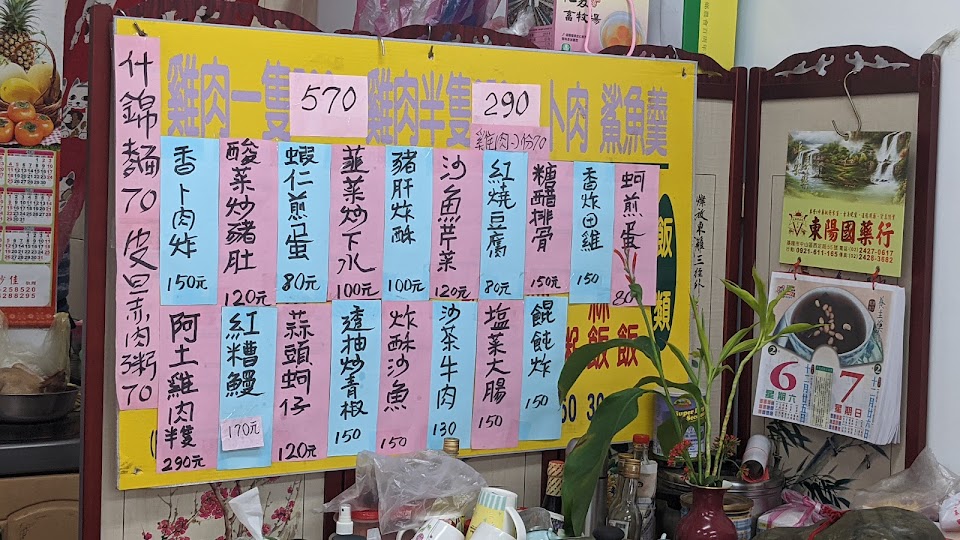 什錦麵70 皮旦柔肉粥70
雞肉一隻
570
雞肉半隻
290
卜肉
鯊魚羹
雞肉小份70
香卜肉炸
150元
酸菜炒豬肚
120元
蝦仁煎蛋
80元
韮菜炒下水
100元
豬肝炸酥
100元
沙魚芹菜
120元
紅燒豆腐
80元
糖醋排骨
150元
香炸田雞
150
蚵煎蛋
80
飯類
阿土雞肉半隻
290元
紅糟鰻
170元
蒜頭蚵仔
120元
渣抽炒青椒
150
炸酥沙魚
150
沙茶牛肉
130
塩菜大腸
150
餛飩炸
150
飯
飯
50
30
畜牧場
東陽國藥行
行動 0921-611-165
2427-0617
2428-3682
6
星期六
7
星期日